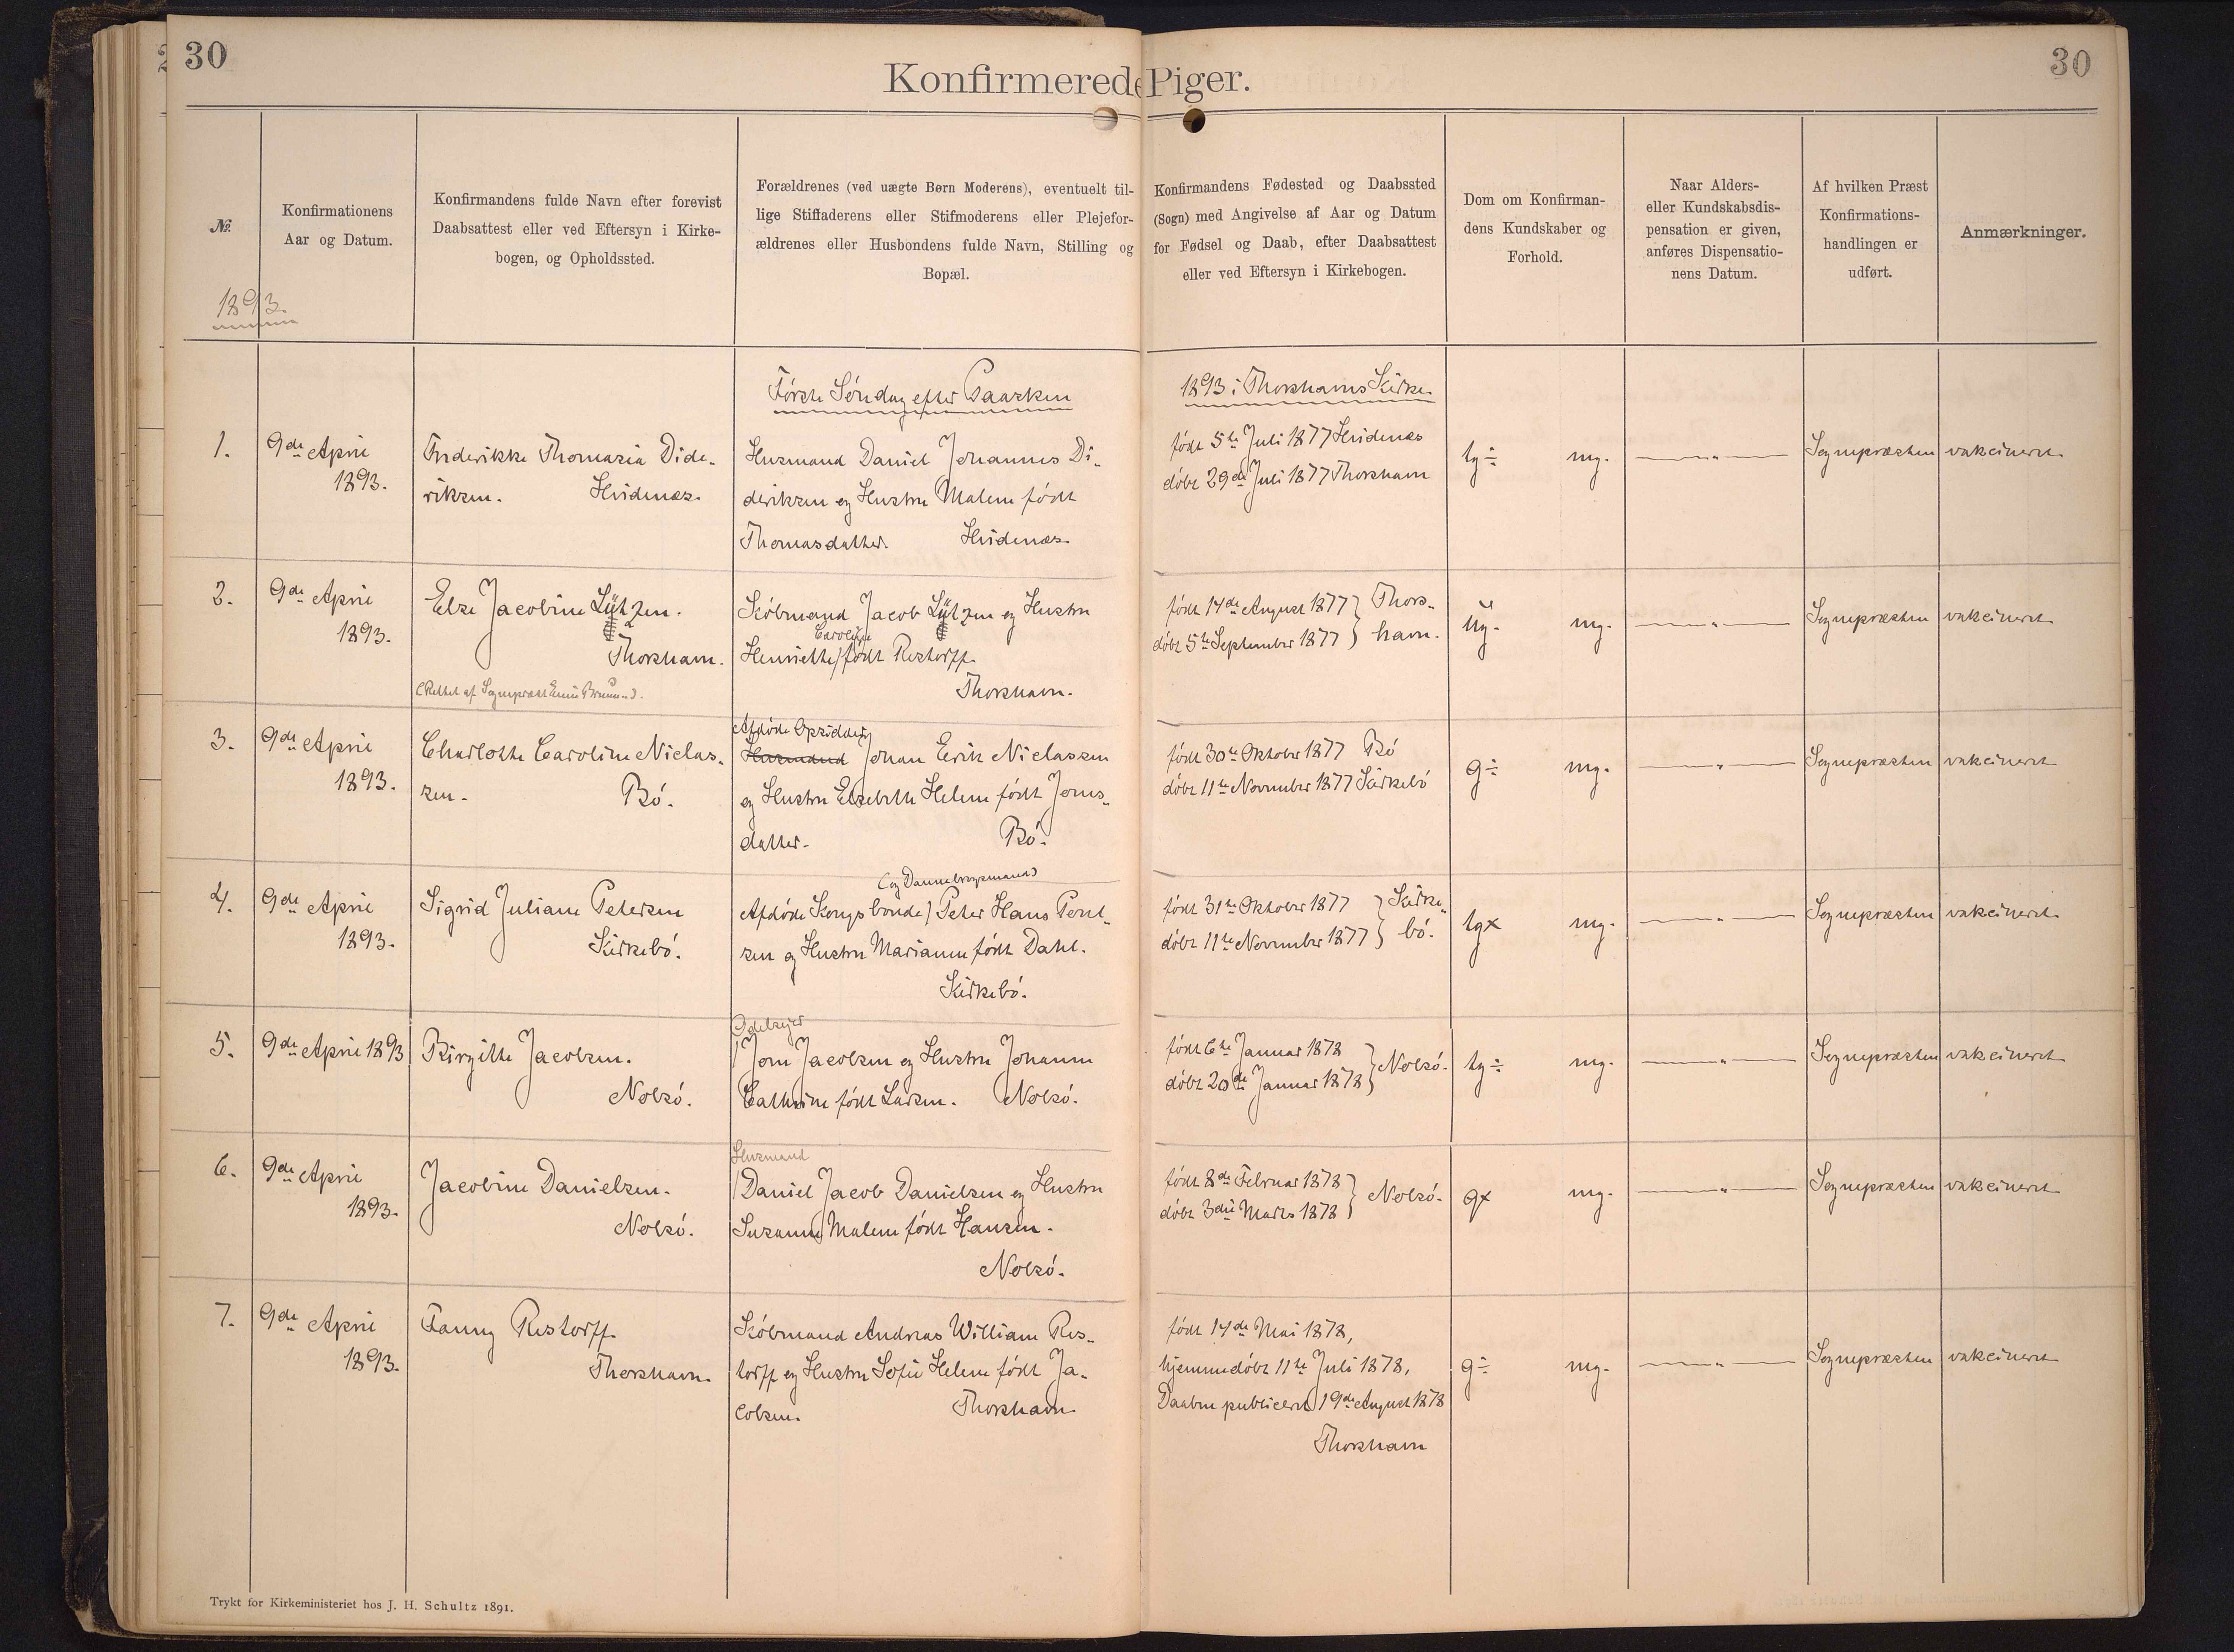 30
30
Konfirmerede Piger.
№.
Konfirmationens
Aar og Datum.
Konfirmandens fulde Navn efter forevist
Daabsattest eller ved Eftersyn i Kirke-
bogen, og Opholdssted.
Forældrenes (ved uægte Børn Moderens), eventuelt til-
lige Stiffaderens eller Stifmoderens eller Plejefor-
ældrenes eller Husbondens fulde Navn, Stilling og
Bopæl.
Konfirmandens Fødested og Daabssted
(Sogn) med Angivelse af Aar og Datum
for Fødsel og Daab, efter Daabsattest
eller ved Eftersyn i Kirkebogen.
Dom om Konfirman-
dens Kundskaber og
Forhold.
Naar Alders-
eller Kundskabsdis-
pensation er given,
anføres Dispensatio-
nens Datum.
Af hvilken Præst
Konfirmations-
handlingen er
udført.
Anmærkninger.
1893.
Første Søndag efter Paasken
1893 i Thorshavns Kirke
1.
9de April
1893.
Frederikke Thomasia Dide-
riksen. Hvidenæs.
Husmand Daniel Johannes Di-
deriksen og Hustru Malene født
Thomasdatter. Hvidenæs.
født 5te Juli 1877 Hvidenæs
døbt 29de Juli 1877 Thorshavn
tg÷ mg.
—„—
Sognepræsten
vakcineret
2.
9de April
1893.
Else Jacobine Lützen.
Thorshavn.
(Rettet af Sognepræst Emil Bruun.)
Købmand Jacob Lützen og Hustru
Caroline
Henriette / født Restorff.
Thorshavn.
født 14de August 1877 } Thors-
døbt 5te September 1877 } havn.
ug- mg.
—„—
Sognepræsten
vakcineret
3.
9de April
1893.
Charlotte Caroline Niclas-
sen. Bø.
Afdøde Opsidder
Husmand Johan Eerik Niclassen
og Hustru Elsebeth Helene født Joens-
datter. Bø.
født 30te Oktober 1877 Bø
døbt 11te November 1877 Kirkebø
g÷ mg.
—„—
Sognepræsten
vakcineret
4.
9de April
1893.
Sigrid Juliane Petersen
Kirkebø.
(og Dannebrogsmand)
Afdøde Kongsbonde / Peter Hans Poul-
sen og Hustru Marianne født Dahl.
Kirkebø.
født 31te Oktober 1877 } Kirke-
døbt 11te November 1877 } bø.
tgx mg.
—„—
Sognepræsten
vakcineret
5.
9de April 1893
Birgithe Jacobsen.
Nolsø.
Odelsejer
/ Joen Jacobsen og Hustru Johanne
Cathrine født Larsen. Nolsø.
født 6te Januar 1878 } Nolsø.
døbt 20de Januar 1878 }
tg÷ mg.
—„—
Sognepræsten
vakcineret
6.
9de April
1893.
Jacobine Danielsen.
Nolsø.
Husmand
/ Daniel Jacob Danielsen og Hustru
Susanne Malene født Hansen.
Nolsø.
født 8de Februar 1878 } Nolsø.
døbt 3die Marts 1878 }
gx mg.
—„—
Sognepræsten
vakcineret
7.
9de April
1893.
Fanny Restorff.
Thorshavn.
Købmand Andreas William Res-
torff og Hustru Sofie Helene født Ja-
cobsen. Thorshavn.
født 14de Mai 1878,
hjemmedøbt 11te Juli 1878,
Daaben publiceret 19de August 1878
Thorshavn
g÷ mg.
—„—
Sognepræsten
vakcineret
Trykt for Kirkeministeriet hos J. H. Schultz 1891.